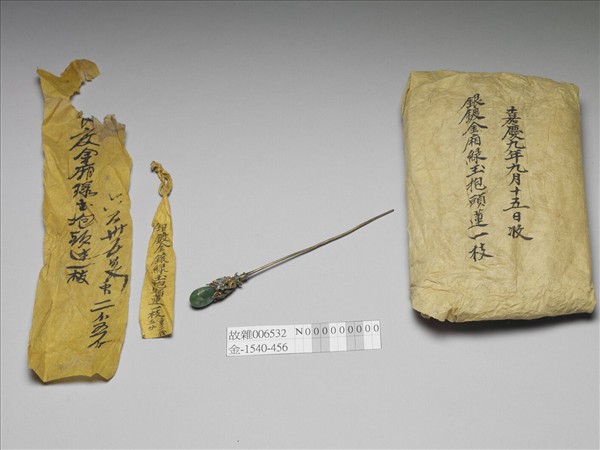 嘉慶九年九月十五日收
銀鍍金廂綠玉抱頭蓮一枝
銀鍍金銀綠玉抱頭蓮一枝
度金廂綠玉抱頭連一枝
二小
故雜006532 N000000000
金-1540-456